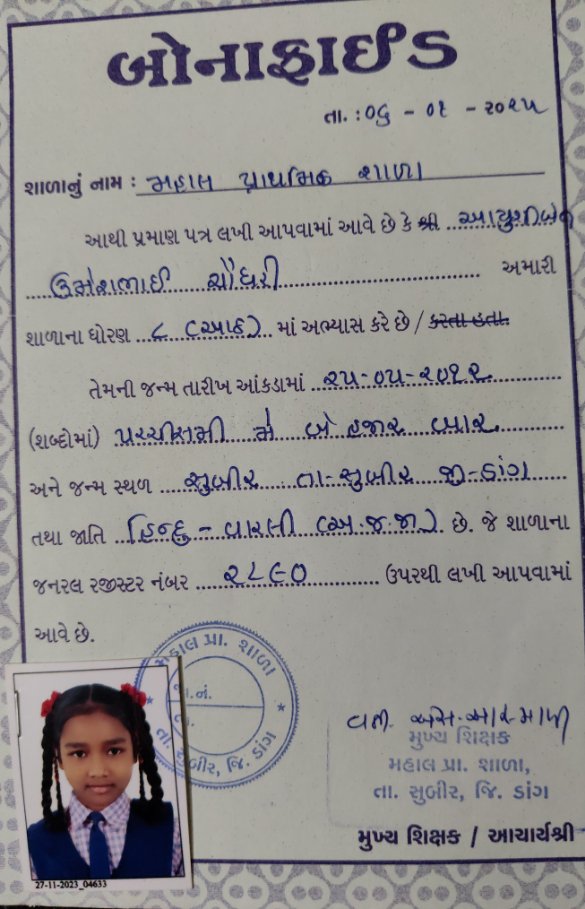 બોનાફાઈડ
તા. : ૦૬ - ૦૧ - ૨૦૨૫
શાળાનું નામ : મહાલ પ્રાથમિક શાળા
આથી પ્રમાણ પત્ર લખી આપવામાં આવે છે કે શ્રી આયુશીબેન
ઉમેશભાઈ ચૌધરી અમારી
શાળાના ધોરણ ૮ (આઠ) માં અભ્યાસ કરે છે / કરતા હતા.
તેમની જન્મ તારીખ આંકડામાં ૨૫-૦૫-૨૦૧૨
(શબ્દોમાં) પચ્ચીસમી મે બે હજાર બાર
અને જન્મ સ્થળ સુબીર તા-સુબીર જી-ડાંગ
તથા જાતિ હિન્દુ - વારલી (અ.જ.જા) છે. જે શાળાના
જનરલ રજીસ્ટર નંબર ૨૮૯૦ ઉપરથી લખી આપવામાં
આવે છે.
મહાલ પ્રા. શાળા
તા. સુબીર, જિ. ડાંગ
વતી. એસ.આર.માળી
મુખ્ય શિક્ષક
મહાલ પ્રા. શાળા,
તા. સુબીર, જિ. ડાંગ
મુખ્ય શિક્ષક / આચાર્યશ્રી
27-11-2023_04633